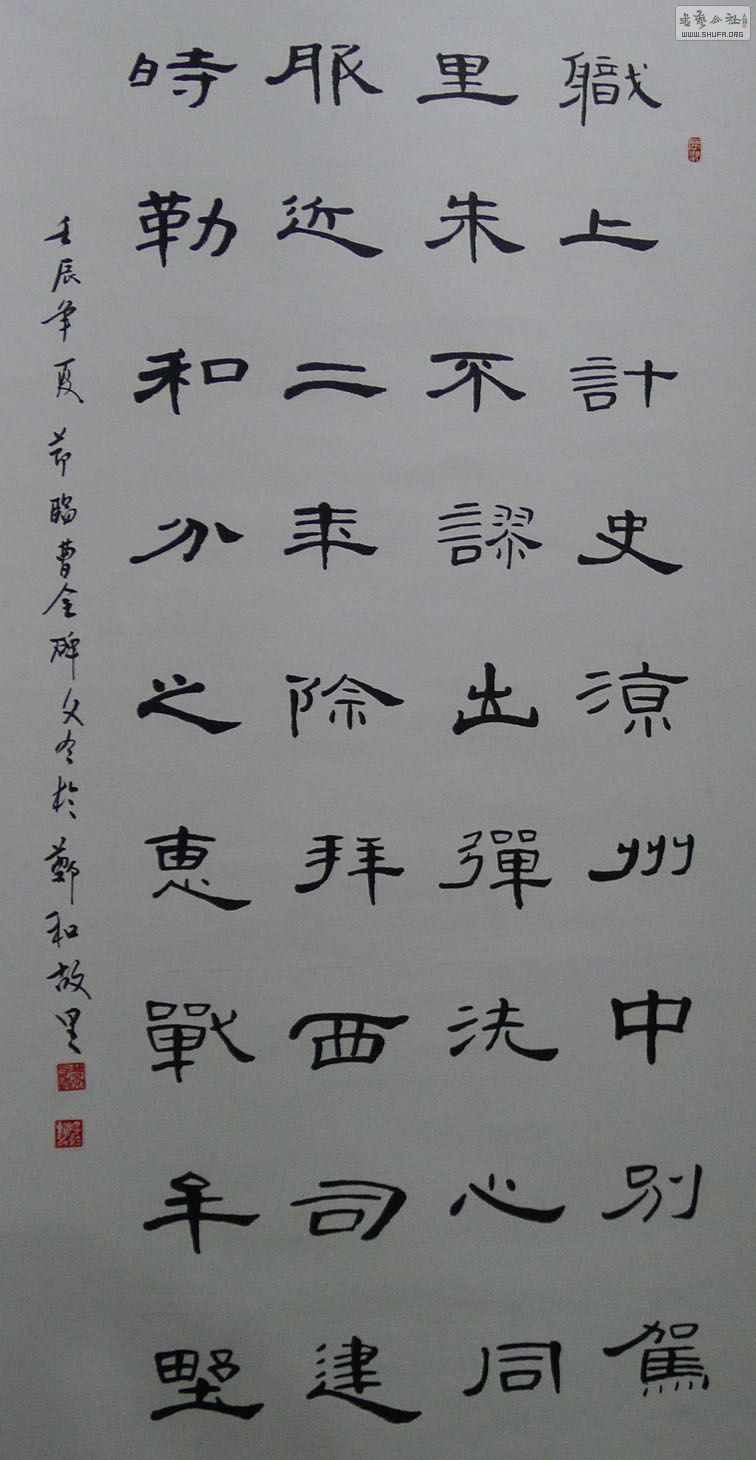 職上計史涼州中別駕
里朱不謬出彈法心同
服近二年除拜西司建
時勒和分之惠戰牟野
壬辰年夏節臨曹全碑文令於鄭和故里
WWW.SHUFA.ORG